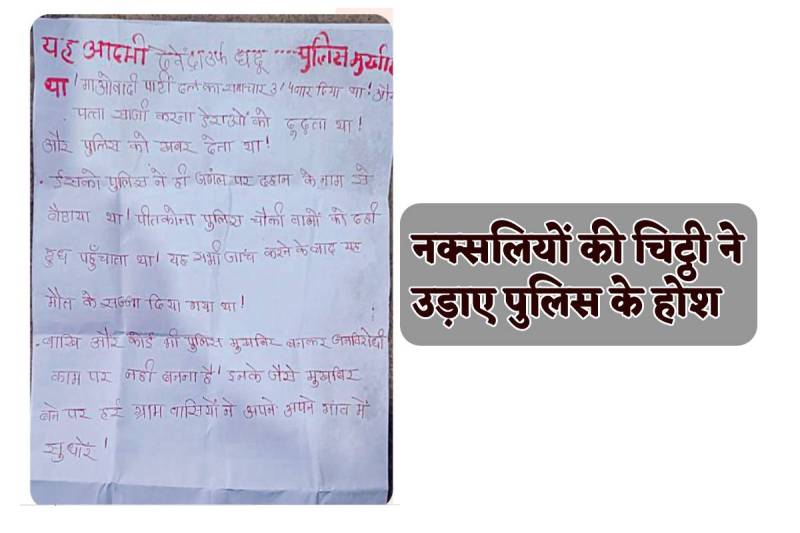 यह आदमी देवेंद्र उर्फ धदू ---- पुलिस मुखबि
था! माओवादी पार्टी दल का समाचार था!
पत्ता साजी करना डेराओं को ढूढ़ता था!
और पुलिस को खबर देता था!
. ईसको पुलिस ने ही जगंल पर दहान के नाम से
बैठाया था! पीतकोना पुलिस चौकी वालों को दही
दूध पहुँचाता था! यह सभी जांच करने के बाद यह
मौत के सज्जा दिया गया था!
. बाखि और कोई भी पुलिस मुखबिर बनकर जनविरोधी
काम पर नही बनना है! इनके जैसे मुखबिर
बने पर हर्र ग्राम वासियों ने अपने अपने गांव में
सुधारें!
नक्सलियों की चिट्ठी ने
उड़ाए पुलिस के होश